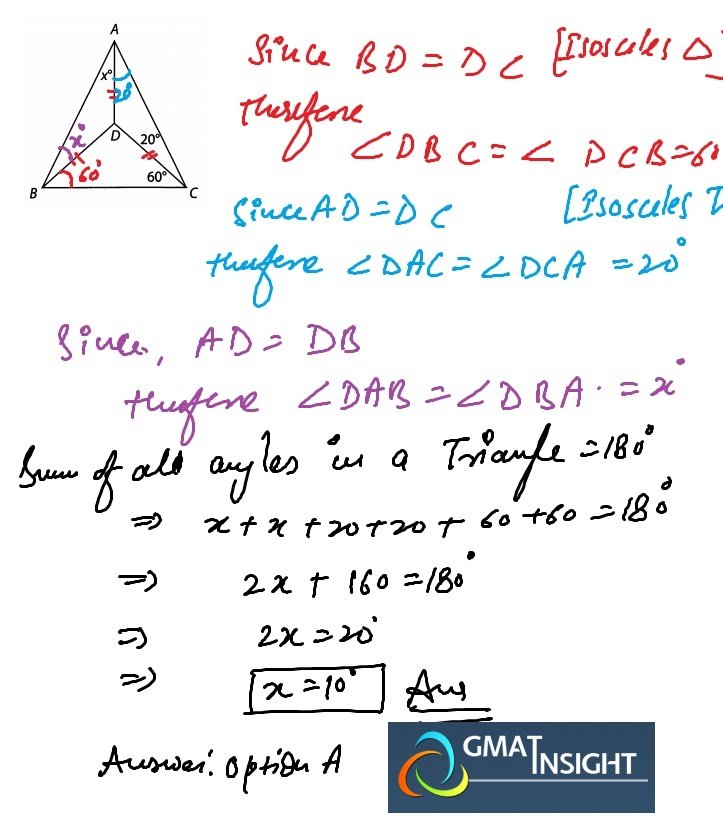 A
x°
20°
D
20°
x°
60°
60°
B
C
Since BD = DC [Isosceles Δ
therefore
∠DBC = ∠DCB = 60
Since AD = DC [Isosceles
therefore ∠DAC = ∠DCA = 20°
Since, AD = DB
therefore ∠DAB = ∠DBA. = x°
Sum of all angles in a Triangle = 180°
⇒ x + x + 20 + 20 + 60 + 60 = 180°
⇒ 2x + 160 = 180°
⇒ 2x = 20°
⇒ x = 10° Ans
Answer: option A
GMAT INSIGHT